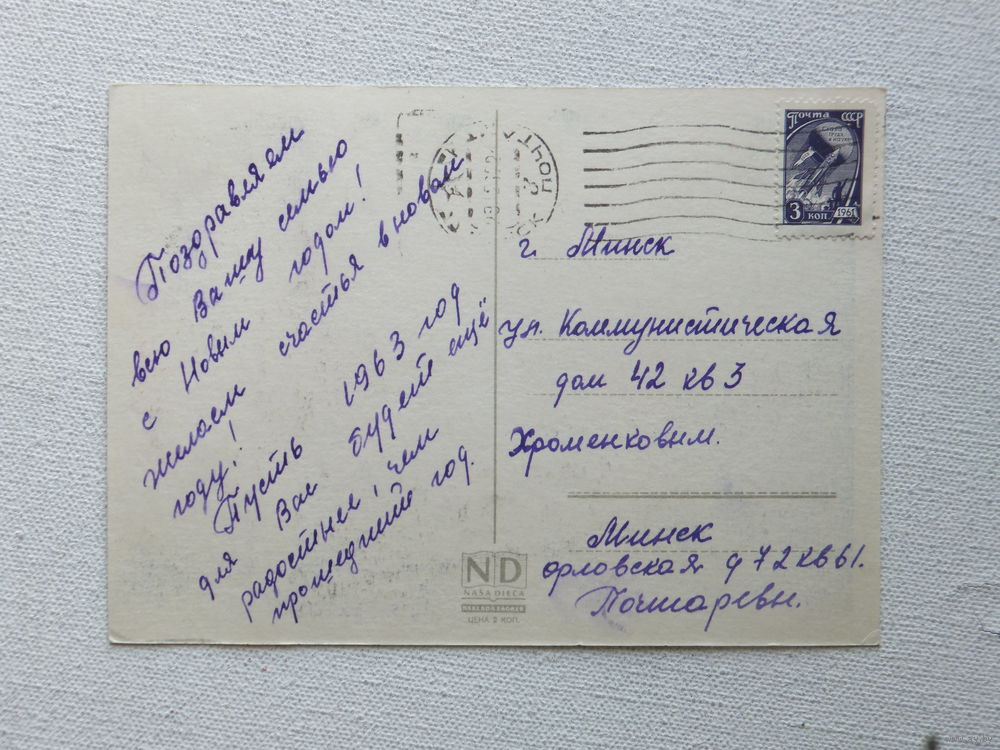 Поздравляем
всю Вашу семью
с Новым годом!
желаем счастья в новом
году!
Пусть 1963 год
для Вас будет ещё
радостнее, чем
прошедший год.
Почта СССР
3 коп 1961
г. Минск
ул. Коммунистическая
дом 42 кв 3
Хроменковым.
Минск
орловская д 72 кв 61.
ND
NAŠA DJECA
NAKLADA ZAGREB
ЦЕНА 8 КОП.